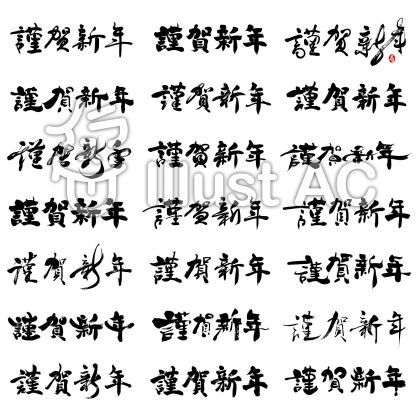 謹賀新年 謹賀新年 謹賀新年
謹賀新年 謹賀新年 謹賀新年
謹賀新年 謹賀新年 謹賀新年
謹賀新年 謹賀新年 謹賀新年
謹賀新年 謹賀新年 謹賀新年
謹賀新年 謹賀新年 謹賀新年
謹賀新年 謹賀新年 謹賀新年
Illust AC